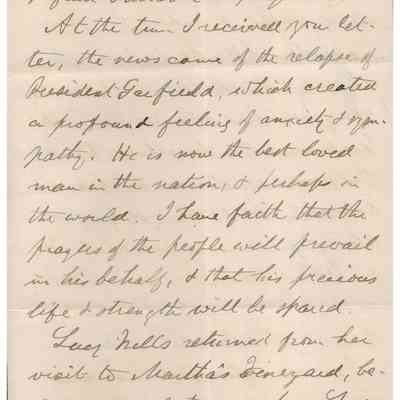 At the time I received you let-
ter, the news came of the relapse of
President Garfield, which created
a profound feeling of anxiety & sym-
pathy. He is now the best loved
man in the nation, & perhaps in
the world. I have faith that the
prayers of the people will prevail
in his behalf, & that his precious
life & strength will be spared.
Lucy Mills returned from her
visit to Martha's Vineyard, be-